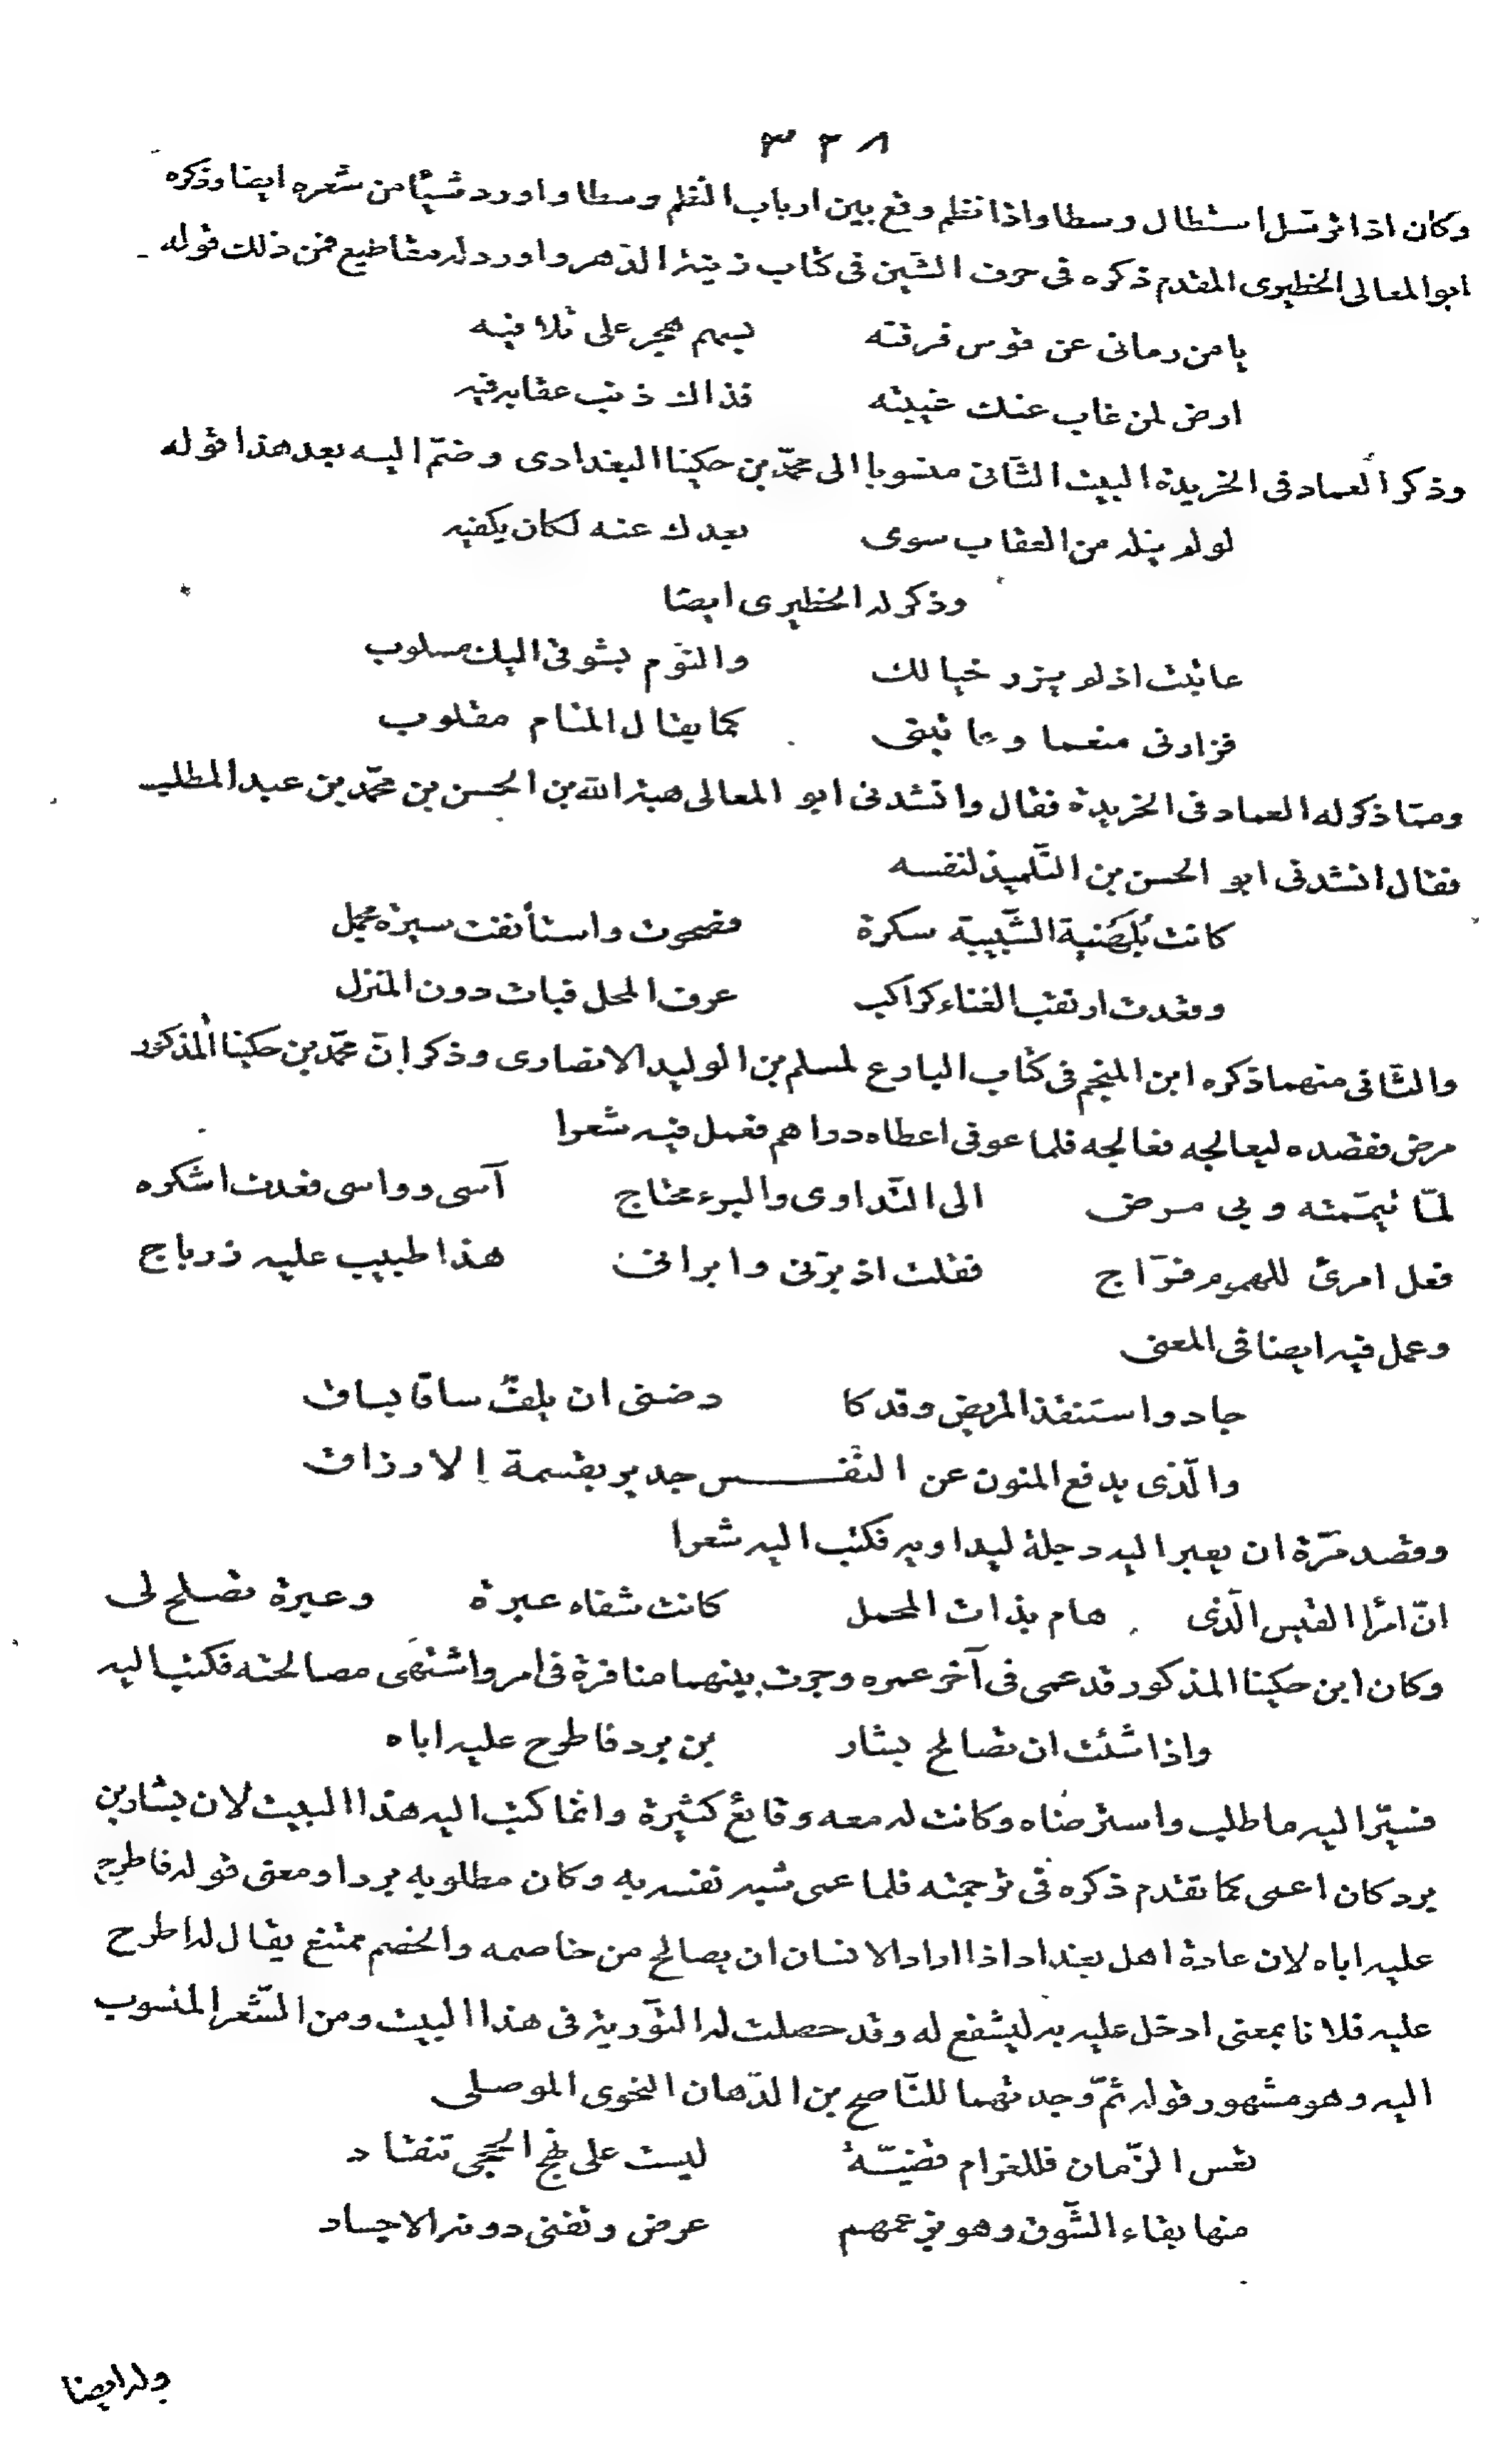 ٣٢٨
وكان اذا ترسّل استطال وسطا واذا نظم وقع بين ارباب النّظم وسطا واورد شيئا من شعره ايضا وذكره
ابوالمعالى الخطيرى المقدم ذكره فى حرف السّين فى كتاب زينة الدّهر واورد له مقاطيع فمن ذلك قوله
يا من رمانى عن قوس فرقته بسهم هجر على تلافيه
ارض لمن غاب عنك غيبته فذاك ذنب عقابه فيه
وذكر العماد فى الخريدة البيت الثّانى منسوبا الى محمّد بن حكينا البغدادى وضمّ اليه بعد هذا قوله
لو لم ينله من العقاب سوى بعدك عنه لكان يكفيه
وذكر له الخطيرى ايضا
عاتبت اذ لم يزر خيالك والنّوم بشوقى اليك مسلوب
فزارنى منعما وعاتبنى كما يقال المنام مقلوب
وممّا ذكر له العماد فى الخريدة فقال وانشدنى ابو المعالى هبة الله بن الحسن بن محمّد بن عبد المطلب
فقال انشدنى ابو الحسن بن التّلميذ لنفسه
كانت بُلَهْنية الشّبيبة سكرة فصحوت واستأنفت سيرة مجمل
وقعدت ارتقب الفناء كراكب عرف المحل فبات دون المنزل
والثّانى منهما ذكره ابن المنجم فى كتاب البارع لمسلم بن الوليد الانصارى وذكر انّ محمّد بن حكينا المذكور
مرض فقصده ليعالجه فعالجه فلما عوفى اعطاه دراهم فعمل فيه شعرا
لمّا تيمّمته وبى مرض الى التّداوى والبرء محتاج آسى وواسى فعدت اشكره
فعل امرئ للهموم فرّاج فقلت اذ برّنى وابرانى هذا طبيب عليه زرباج
وعمل فيه ايضا فى المعنى
جاد واستنقذ المريض وقد كا دضنى ان يلفّ ساقا بساق
والّذى يدفع المنون عن النّفس جدير بقسمة الارزاق
وقصد مرّة ان يعبر اليه دجلة ليداويه فكتب اليه شعرا
انّ امرأ القيس الّذى هام بذات المحمل كانت شفاه عبرة وعبرة تصلح لى
وكان ابن حكينا المذكور قد عمى فى آخر عمره وجرت بينهما منافرة فى امر واشتهى مصالحته فكتب اليه
واذا شئت ان تصالح بشار بن برد فاطرح عليه اباه
فسيّر اليه ما طلب واسترضاه وكانت له معه وقائع كثيرة وانما كتب اليه هذا البيت لان بشار بن
برد كان اعمى كما تقدم ذكره فى ترجمته فلما عمى شبه نفسه به وكان مطلوبه بردا ومعنى قوله فاطرح
عليه اباه لان عادة اهل بغداد اذا اراد الانسان ان يصالح من خاصمه والخصم ممتنع يقال له اطرح
عليه فلانا بمعنى ادخل عليه به ليشفع له وقد حصلت له التّورية فى هذا البيت ومن الشّعر المنسوب
اليه وهو مشهور قوله ثمّ وجدتهما للنّاصح بن الدّهان النحوى الموصلى
تعس الزّمان فللغرام قضيّة ليست على نهج الحجى تنقاد
منها بقاء الشّوق وهو بزعمهم عرض وتفنى دونه الاجساد
وله ايضا